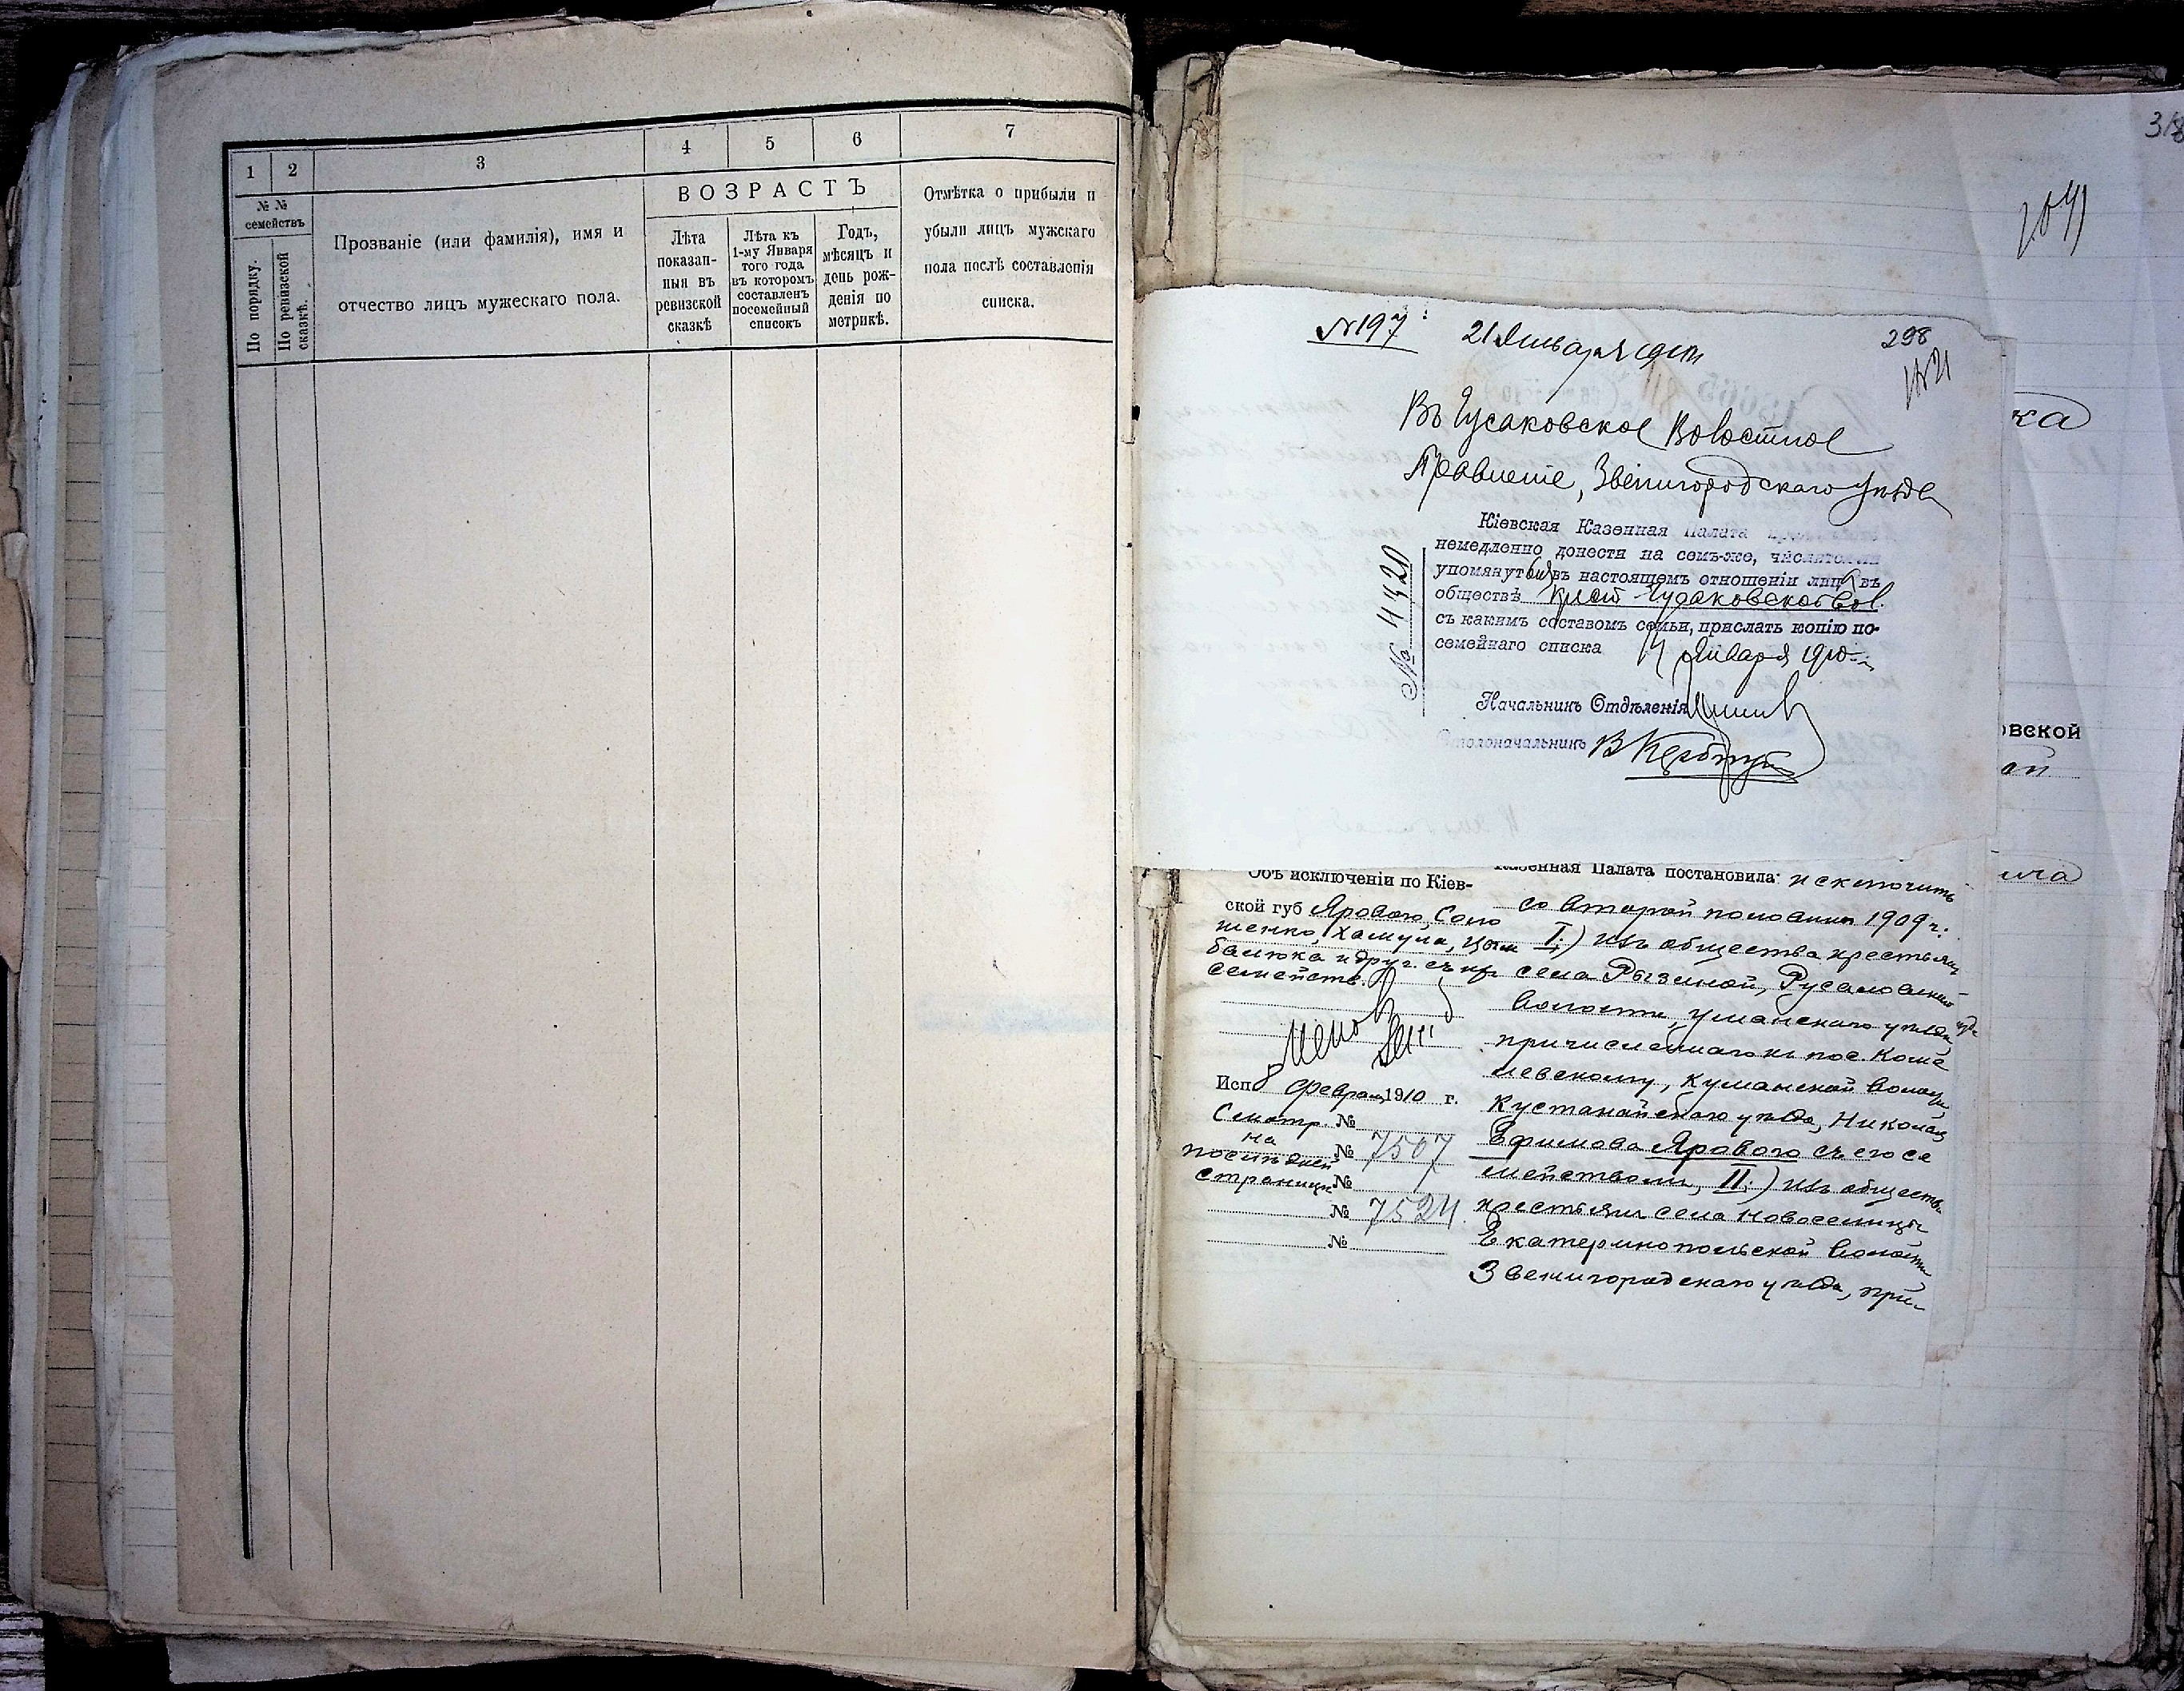 1 2 3 4 5 6 7
№ №
семействъ
По порядку.
По ревизской
сказкѣ.
Прозваніе (или фамилія), имя и
отчество лицъ мужескаго пола.
ВОЗРАСТЪ
Лѣта
показан-
ныя въ
ревизской
сказкѣ
Лѣта къ
1-му Января
того года
въ которомъ
составленъ
посемейный
списокъ
Годъ,
мѣсяцъ и
день рож-
денія по
метрикѣ.
Отмѣтка о прибыли и
убыли лицъ мужскаго
пола послѣ составленія
списка.
318
№197 21 Января
298
Въ Гусаковское Волостное
Правленіе, Звенигородскаго уѣзда
Кіевская Казенная Палата
немедленно донести на семъ-же, числятся-ли
упомянут въ настоящемъ отношеніи лиц въ
обществѣ крест Гусаковской вол.
съ какимъ составомъ семьи, прислать копію по-
семейнаго списка 14 Января 1910
Начальникъ Отдѣленія
Столоначальникъ
№ 4320
ка
овской
ой
Объ исключеніи по Кіев-
ской губ Ярового, Соло
шенко, Хамула, Цым
балюка и друг. съ ихъ
семейств.
Исп февраля 1910 г.
Смотр. №
на № 7507
послѣдней
страницѣ №
№ 7524
№
Казенная Палата постановила: исключить
со второй половины 1909 г.:
I;) изъ общества крестьянъ
села Рызиной, Русаловской
волости, Уманскаго уѣзда
причисленнаго къ пос. Коме
левскому, Кумакской волости
Кустанайскаго уѣзда, Николая
Ефимова Ярового съ его се
мействомъ, II;) изъ общества
крестьянъ села Новоселицы
Екатеринопольской волости
Звенигородскаго уѣзда, при-